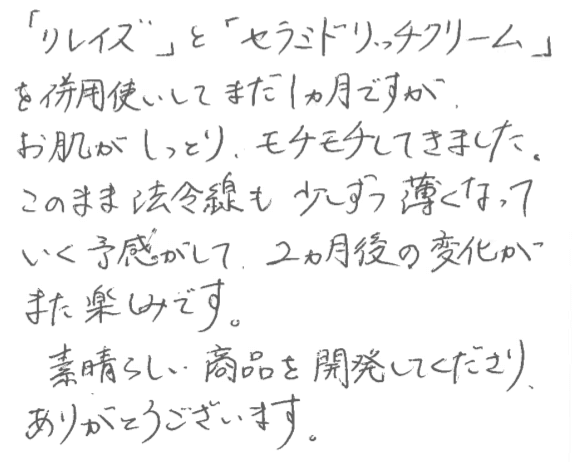 「リレイズ」と「セラミドリッチクリーム」
を併用使いしてまだ1ヵ月ですが、
お肌がしっとり、モチモチしてきました。
このまま法令線も少しずつ薄くなって
いく予感がして、2ヵ月後の変化が
また楽しみです。
素晴らしい商品を開発してくださり、
ありがとうございます。